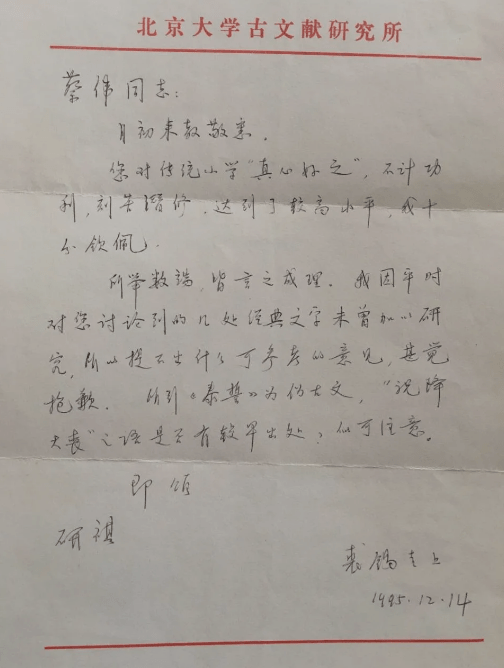 北京大学古文献研究所
蔡伟同志：
月初来教敬悉。
您对传统小学“真心好之”，不计功
利，刻苦潜修，达到了较高水平，我十
分钦佩。
所举数端，皆言之成理。我因平时
对您讨论到的几处经典文字未曾加以研
究，所以提不出什么可参考的意见，甚觉
抱歉。所引《泰誓》为伪古文，“祝降
大丧”之语是否有较早出处？似可注意。
即颂
研祺
裘锡圭上
1995.12.14